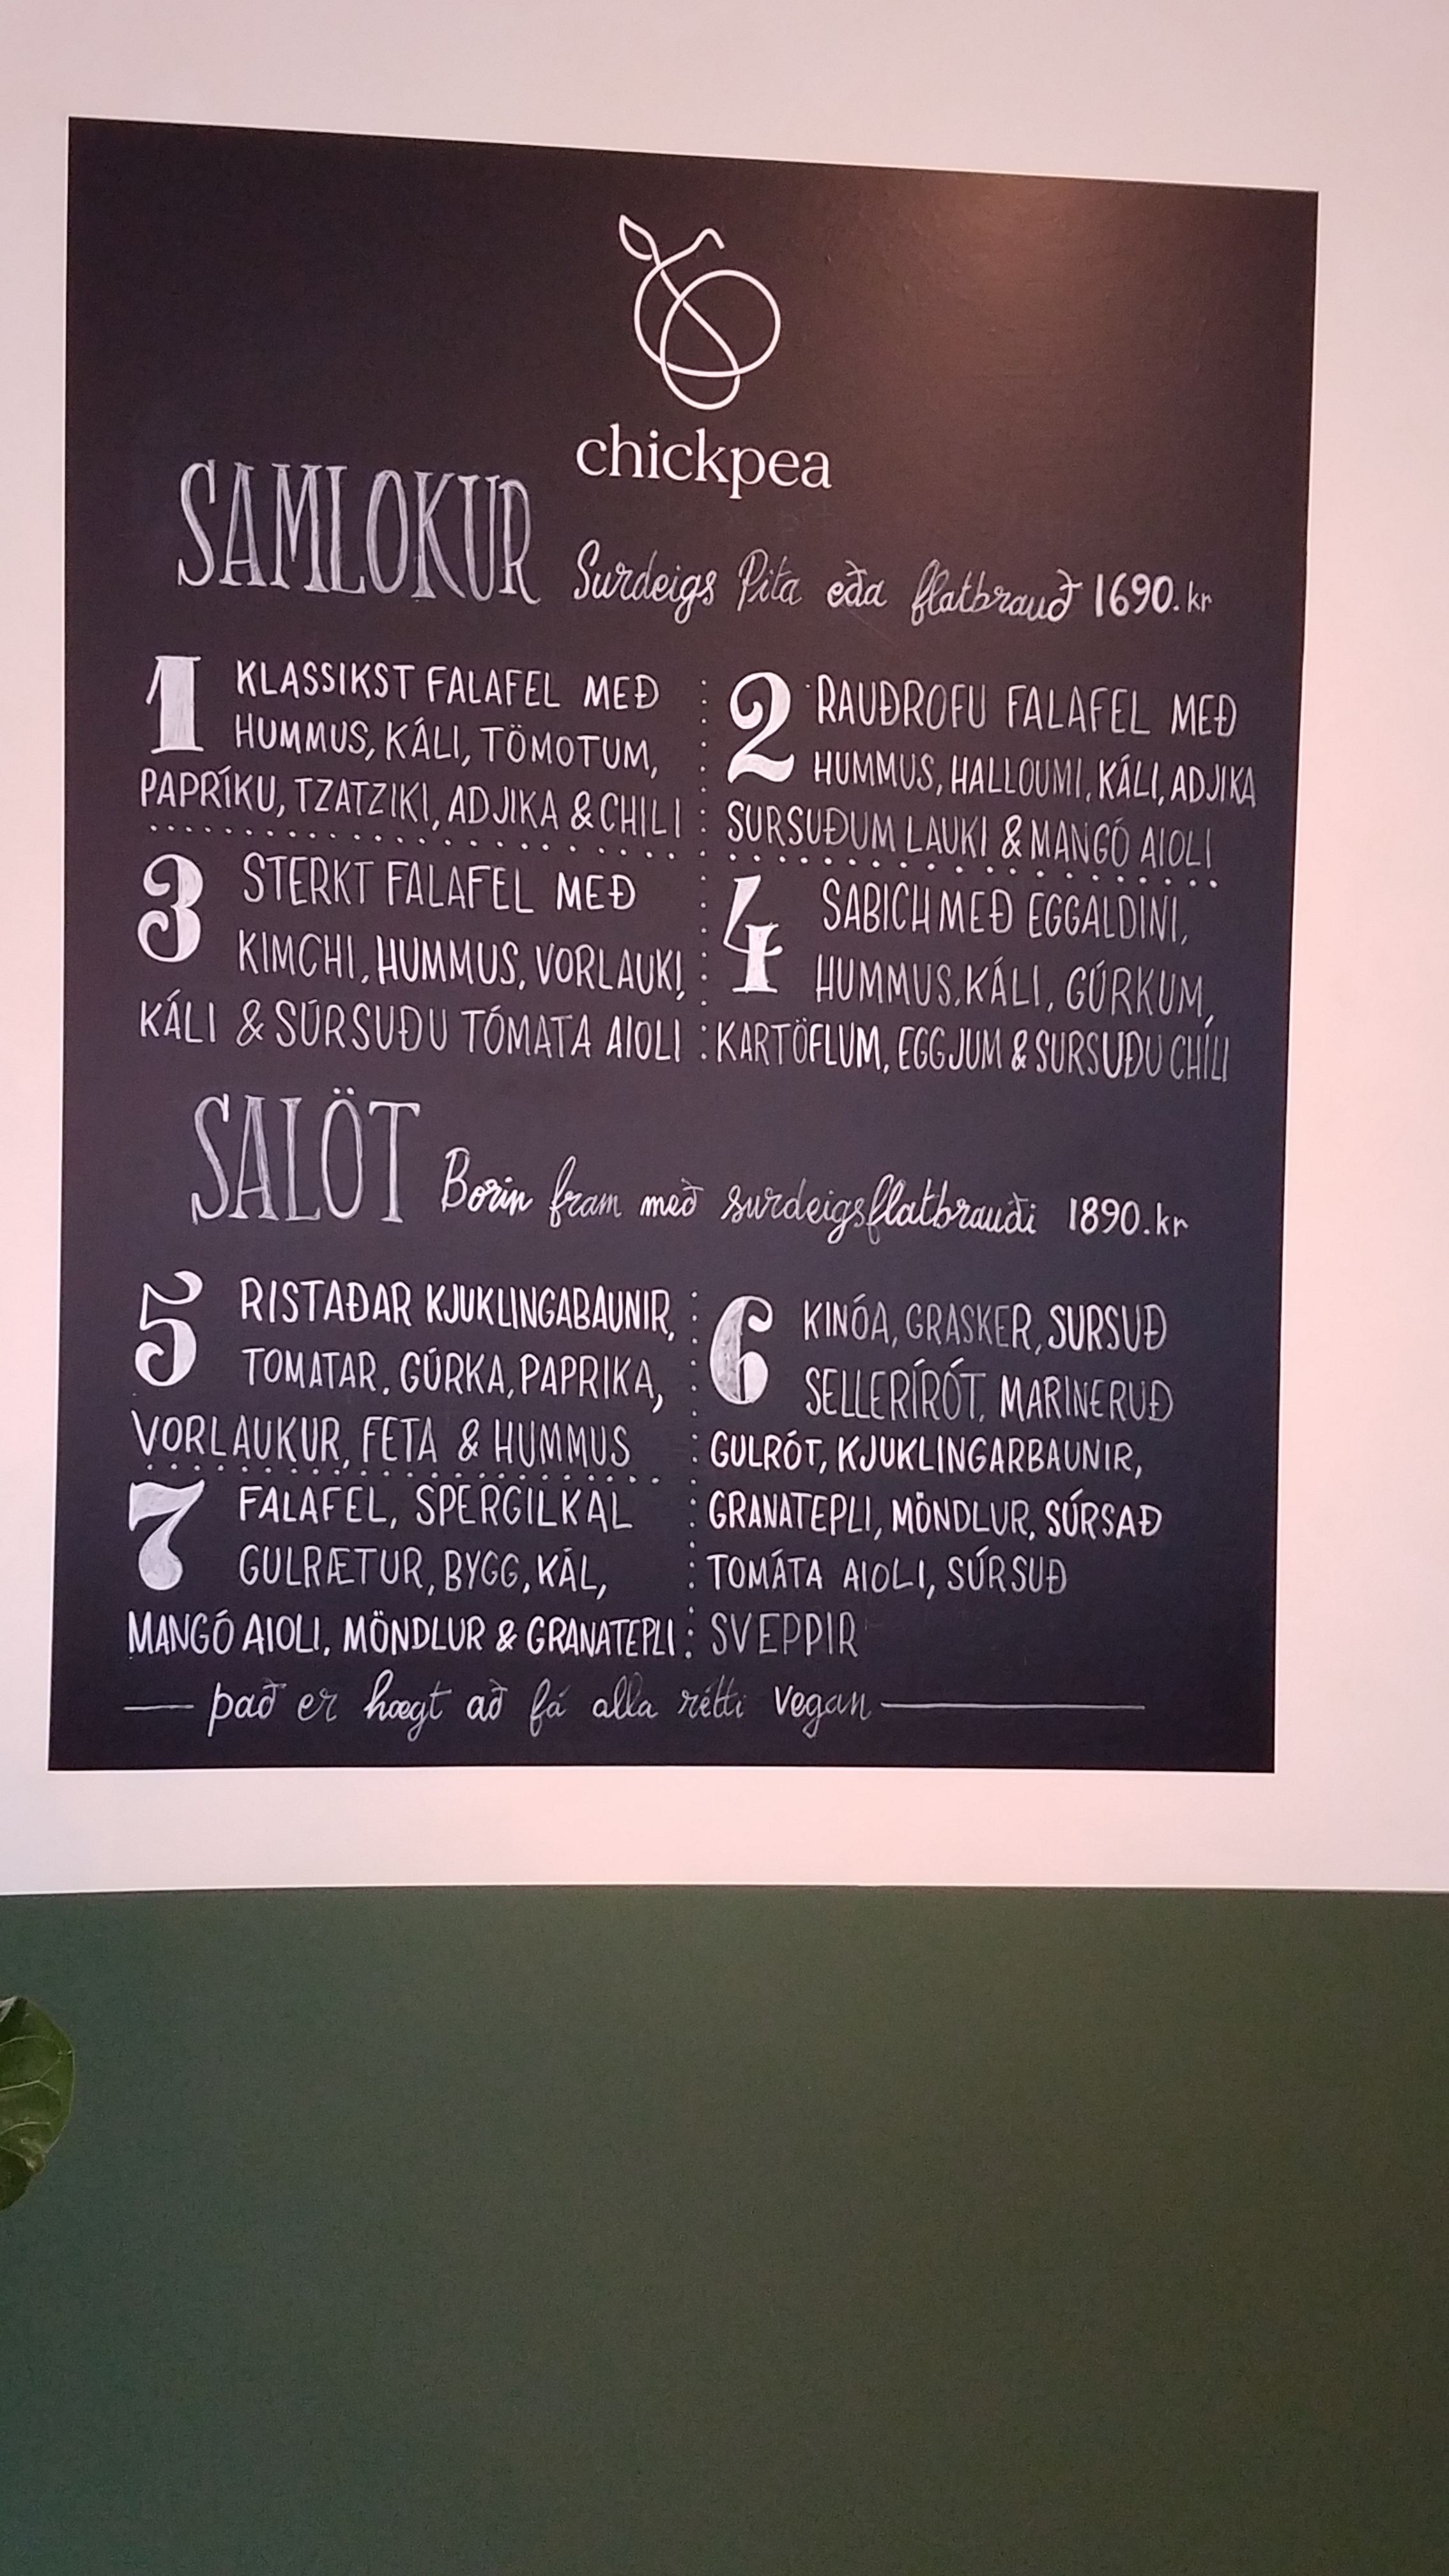 chickpea
SAMLOKUR Surdeigs Pita eða flatbrauð 1690.kr
1 KLASSIKST FALAFEL MEÐ
HUMMUS, KÁLI, TÖMOTUM,
PAPRÍKU, TZATZIKI, ADJIKA & CHILI
2 RAUÐROFU FALAFEL MEÐ
HUMMUS, HALLOUMI, KÁLI, ADJIKA
SURSUÐUM LAUKI & MANGÓ AIOLI
3 STERKT FALAFEL MEÐ
KIMCHI, HUMMUS, VORLAUKI,
KÁLI & SÚRSUÐU TÓMATA AIOLI
4 SABICH MEÐ EGGALDINI,
HUMMUS, KÁLI, GÚRKUM,
KARTÖFLUM, EGGJUM & SURSUÐU CHÍLI
SALÖT Borin fram með surdeigsflatbrauði 1890.kr
5 RISTAÐAR KJUKLINGABAUNIR,
TOMATAR, GÚRKA, PAPRIKA,
VORLAUKUR, FETA & HUMMUS
6 KINÓA, GRASKER, SURSUÐ
SELLERÍRÓT, MARINERUÐ
GULRÓT, KJUKLINGARBAUNIR,
GRANATEPLI, MÖNDLUR, SÚRSAÐ
TOMÁTA AIOLI, SÚRSUÐ
SVEPPIR
7 FALAFEL, SPERGILKAL
GULRÆTUR, BYGG, KÁL,
MANGÓ AIOLI, MÖNDLUR & GRANATEPLI
það er hægt að fá alla rétti vegan